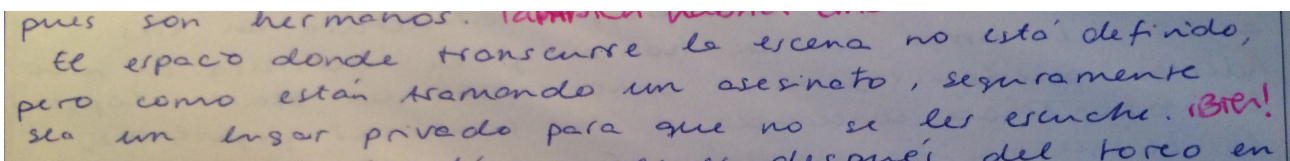 pues son hermanos. También
El espacio donde transcurre la escena no está definido,
pero como están tramando un asesinato, seguramente
sea un lugar privado para que no se les escuche. ¡Bien!
después del toreo en